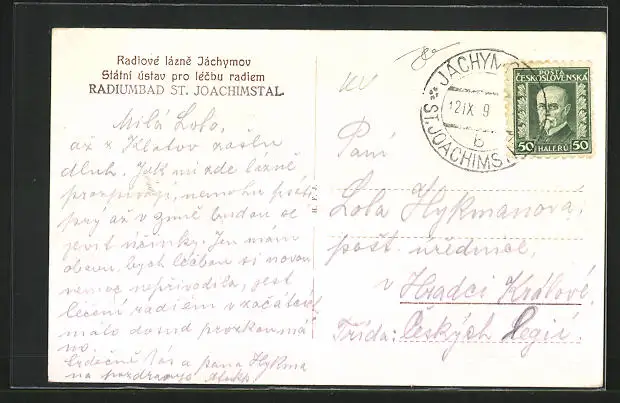 Radiové lázně Jáchymov
Státní ústav pro léčbu radiem
RADIUMBAD ST. JOACHIMSTAL.
Milá Lolo,
až z Klatov zašlu
dluh. Jak mi zde lázně
prospívají, nemohu
prý až v zimě budou se
jevit účinky. Jen mám
obavu, bych léčbou si novou
nemoc nepřivodila, jest
léčení radiem v začátcích
málo dosud prozkoumá
no.
Srdečně Vás a pana Hykma
na pozdravuje
H. F. J.
JÁCHYMOV
12 IX 9
b
ST. JOACHIMS
POŠTA
ČESKOSLOVENSKÁ
50 HALÉŘŮ 50
Paní
Lola Hykmanova,
pošt. úřednice,
v Hradci Králové,
Třída: Českých Legií.